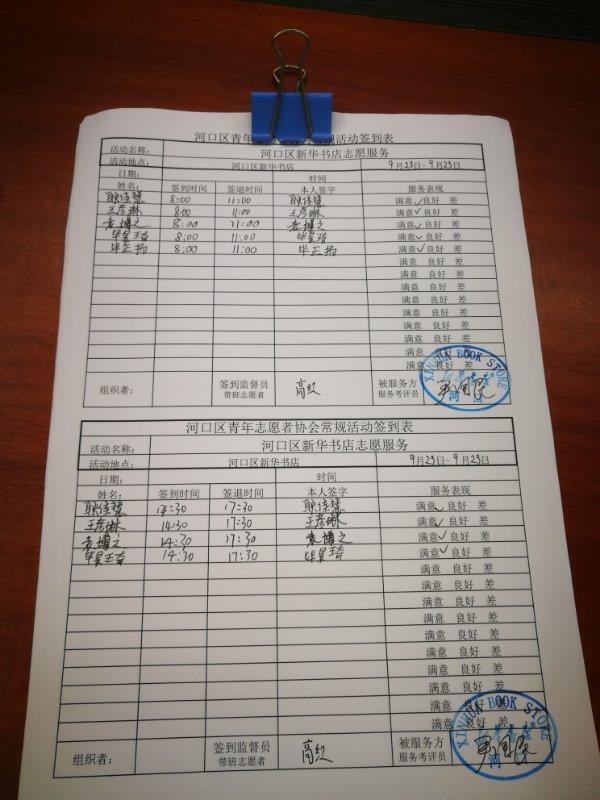 河口区青年 规活动签到表
活动名称： 河口区新华书店志愿服务
活动地点： 河口区新华书店 9月23日-9月23日
日期： 时间
姓名： 签到时间 签退时间 本人签字 服务表现
耿佳慧 8:00 11:00 耿佳慧 满意✓良好 差
王彦琳 8:00 11:00 王彦琳 满意✓良好 差
袁博之 8:00 11:00 袁博之 满意✓良好 差
毕昱琦 8:00 11:00 毕昱琦 满意✓良好 差
毕正扬 8:00 11:00 毕正扬 满意✓良好 差
满意 良好 差
满意 良好 差
满意 良好 差
满意 良好 差
满意 良好 差
满意 良好 差
满意 良好 差
满意 良好 差
满意 良好 差
组织者： 签到监督员 带班志愿者 被服务方 服务考评员
XINHUA BOOK STORE
河口区青年志愿者协会常规活动签到表
活动名称： 河口区新华书店志愿服务
活动地点： 河口区新华书店 9月23日-9月23日
日期： 时间
姓名： 签到时间 签退时间 本人签字 服务表现
耿佳慧 14:30 17:30 耿佳慧 满意✓良好 差
王彦琳 14:30 17:30 王彦琳 满意✓良好 差
袁博之 14:30 17:30 袁博之 满意✓良好 差
毕昱琦 14:30 17:30 毕昱琦 满意✓良好 差
满意 良好 差
满意 良好 差
满意 良好 差
满意 良好 差
满意 良好 差
满意 良好 差
满意 良好 差
满意 良好 差
满意 良好 差
满意 良好 差
组织者： 签到监督员 带班志愿者 被服务方 服务考评员
XINHUA BOOK STORE